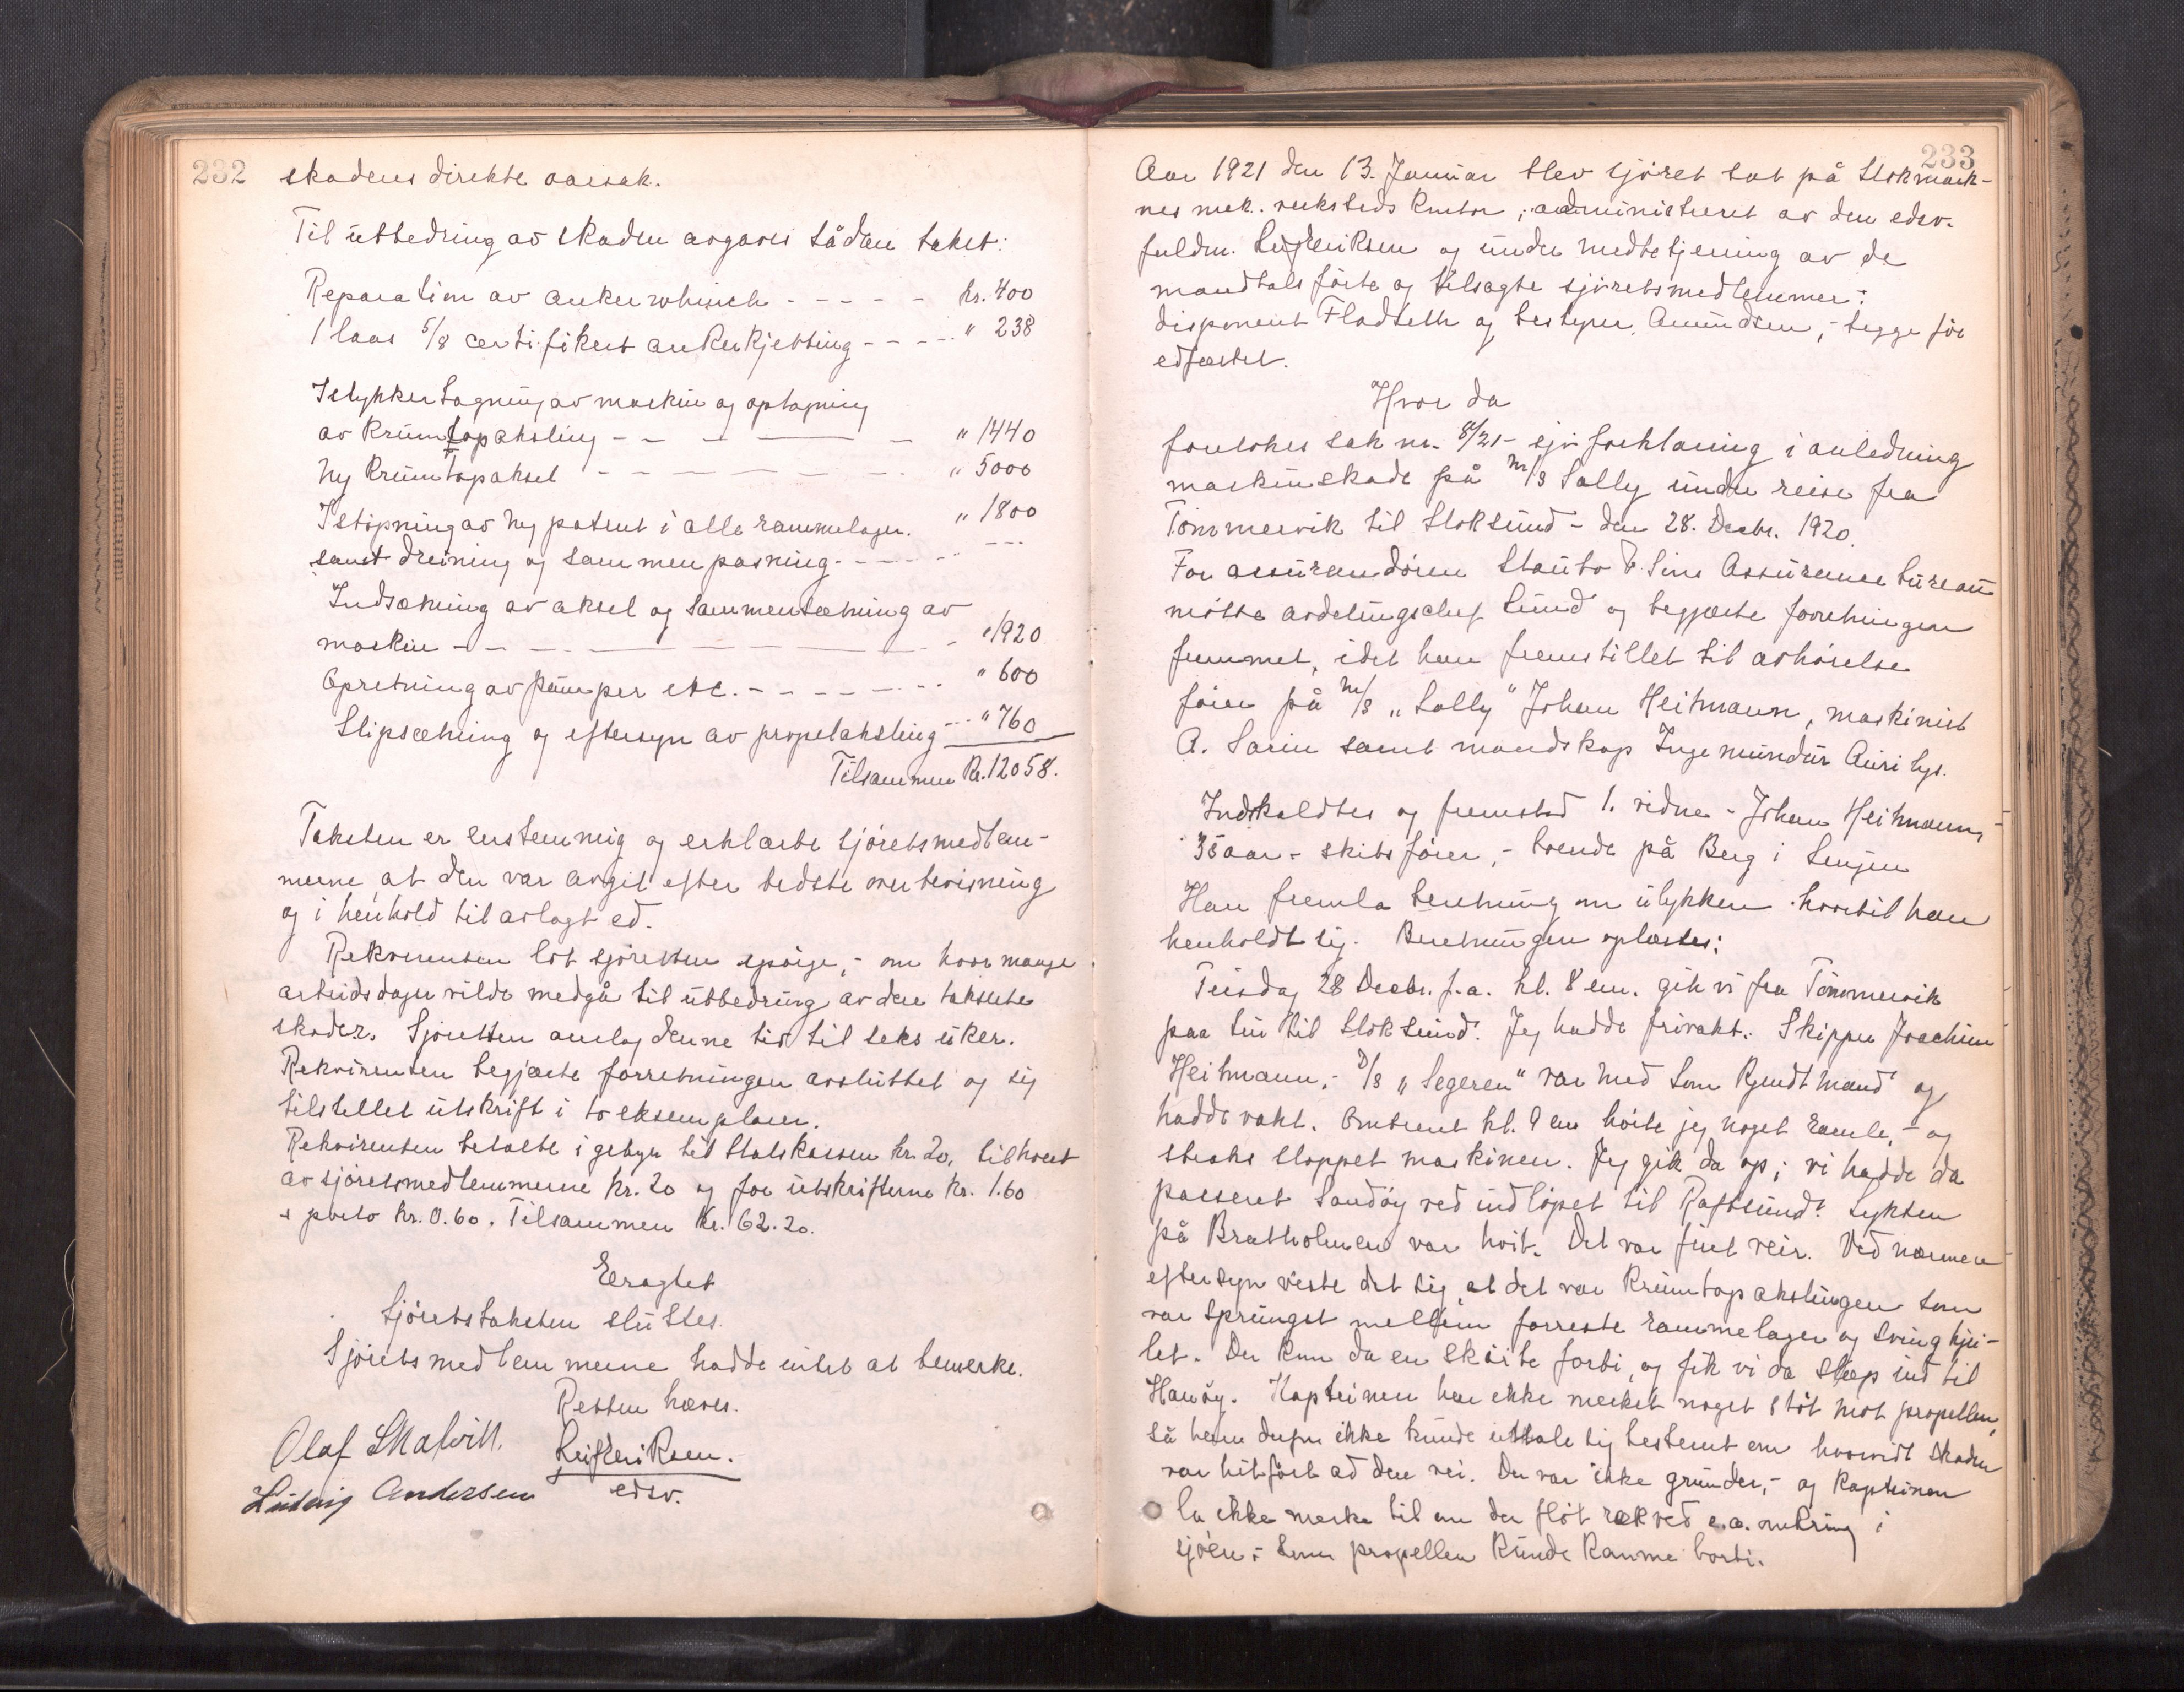 232
skadens direkte aarsak.
Til utbedring av skaden avgaves sådan takst:
Reparation av ankerwhinch - - - - - kr. 400
1 laas 5/8 certifikert ankerkjetting - - - - " 238
Istykkertagning av maskin og optagning
av krumtapaksling - - - - - " 1440
Ny krumtapaksel - - - - - - - " 5000
Istøpning av ny patent i alle rammelager. " 1800
samt dreining og sammenpasning - - - - - ---
Indsætning av aksel og sammensætning av
maskin - - - - - - - - " 1920
Opretning av pumper etc. - - - - - - - " 600
Slipsætning og eftersyn av propelaksling --- " 760
Tilsammen Kr. 12058.
Taksten er enstemmig og erklærte sjøretsmedlem-
merne, at den var avgit efter bedste overbevisning
og i henhold til avlagt ed.
Rekvirenten lot sjøretten spørge, - om hvor mange
arbeidsdager vilde medgå til utbedring av den takserte
skade. Sjøretten anslog denne tid til seks uker.
Rekvirenten begjærte forretningen avsluttet og sig
tilstillet utskrift i to eksemplarer.
Rekvirenten betalte i gebyr til Statskassen kr. 20, til hvert
av sjøretsmedlemmerne kr. 20 og for utskrifterne kr. 1.60
+ porto kr. 0.60. Tilsammen kr. 62.20.
Eragtet
Sjøretstaksten sluttes.
Sjøretsmedlemmerne hadde intet at bemerke.
Retten hævet.
Olaf Leif Eriksen.
Ludvig Andersen edsv.
233
Aar 1921 den 13. Januar blev sjøret sat på Stokmark-
nes mek. verksteds kontor, administreret av den edsv.
fuldm. Leif Eriksen og under medbetjening av de
mandtalsførte og tilsagte sjøretsmedlemmer:
disponent Fladseth og bestyrer Amundsen, - begge før
edfæstet.
Hvor da
foretokes sak nr. 8/21 - sjøforklaring i anledning
maskinskade på M/S Sally under reise fra
Tømmervik til Stoksund - den 28. Decbr. 1920.
For assurandøren Stanto & Sins Assurance bureau
møtte avdelingschef Lund og begjærte forretningen
fremmet, idet han fremstillet til avhørelse
fører på M/S "Sally" Johan Heitmann, maskinist
A. Sarin samt mandskap Ingemundur
Indkaldtes og fremstod 1. vidne - Johan Heitmann,
35 aar - skibsfører, - boende på Berg i Senjen
Han fremla beretning om ulykken hvortil han
henholdt sig. Beretningen oplæstes:
Tirsdag 28 Decbr. f.a. kl. 8 em. gik vi fra Tømmervik
paa tur til Stoksund. Jeg hadde frivakt. Skipper Joachim
Heitmann, - D/S "Segeren" var med som kjendtmand og
hadde vakt. Omtrent kl. 9 em hørte jeg noget ramle, - og
straks stoppet maskinen. Jeg gik da op; vi hadde da
passeret Sandøy ved indløpet til Raftsund. Lykten
på Bratholmen var hvit. Det var fint veir. Ved nærmere
eftersyn viste det sig, at det var krumtapakslingen som
var sprunget mellem forreste rammelager og svinghju-
let. Der kom da en skøite forbi, og fik vi da slæp ind til
Hanøy. Kapteinen har ikke merket noget støt mot propellen,
så han derfor ikke kunde uttale sig bestemt om hvorvidt skaden
var hitført ad den vei. Der var ikke grunder, - og kapteinen
la ikke merke til om der fløt rækved e.a. omkring i
sjøen, - som propellen kunde komme borti.